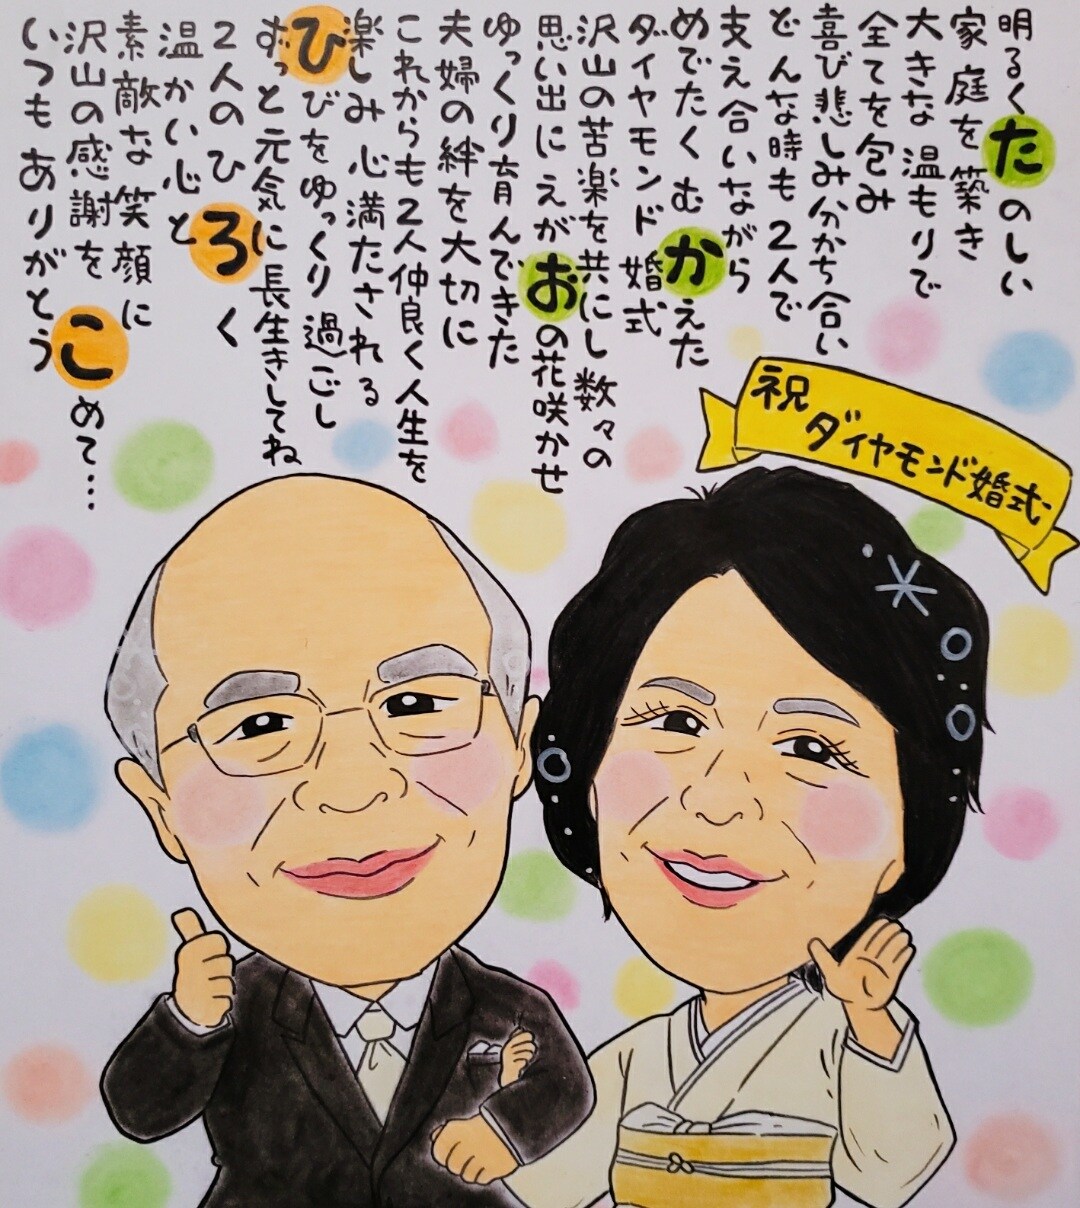 明るくたのしい
家庭を築き
大きな温もりで
全てを包み
喜び悲しみ分かち合い
どんな時も2人で
支え合いながら
めでたくむかえた
ダイヤモンド婚式
沢山の苦楽を共にし数々の
思い出にえがおの花咲かせ
ゆっくり育んできた
夫婦の絆を大切に
これからも2人仲良く人生を
楽しみ心満たされる
ひびをゆっくり過ごし
ずっと元気に長生きしてね
2人のひろく
温かい心と
素敵な笑顔に
沢山の感謝をこめて…
いつもありがとう
祝
ダイヤモンド婚式